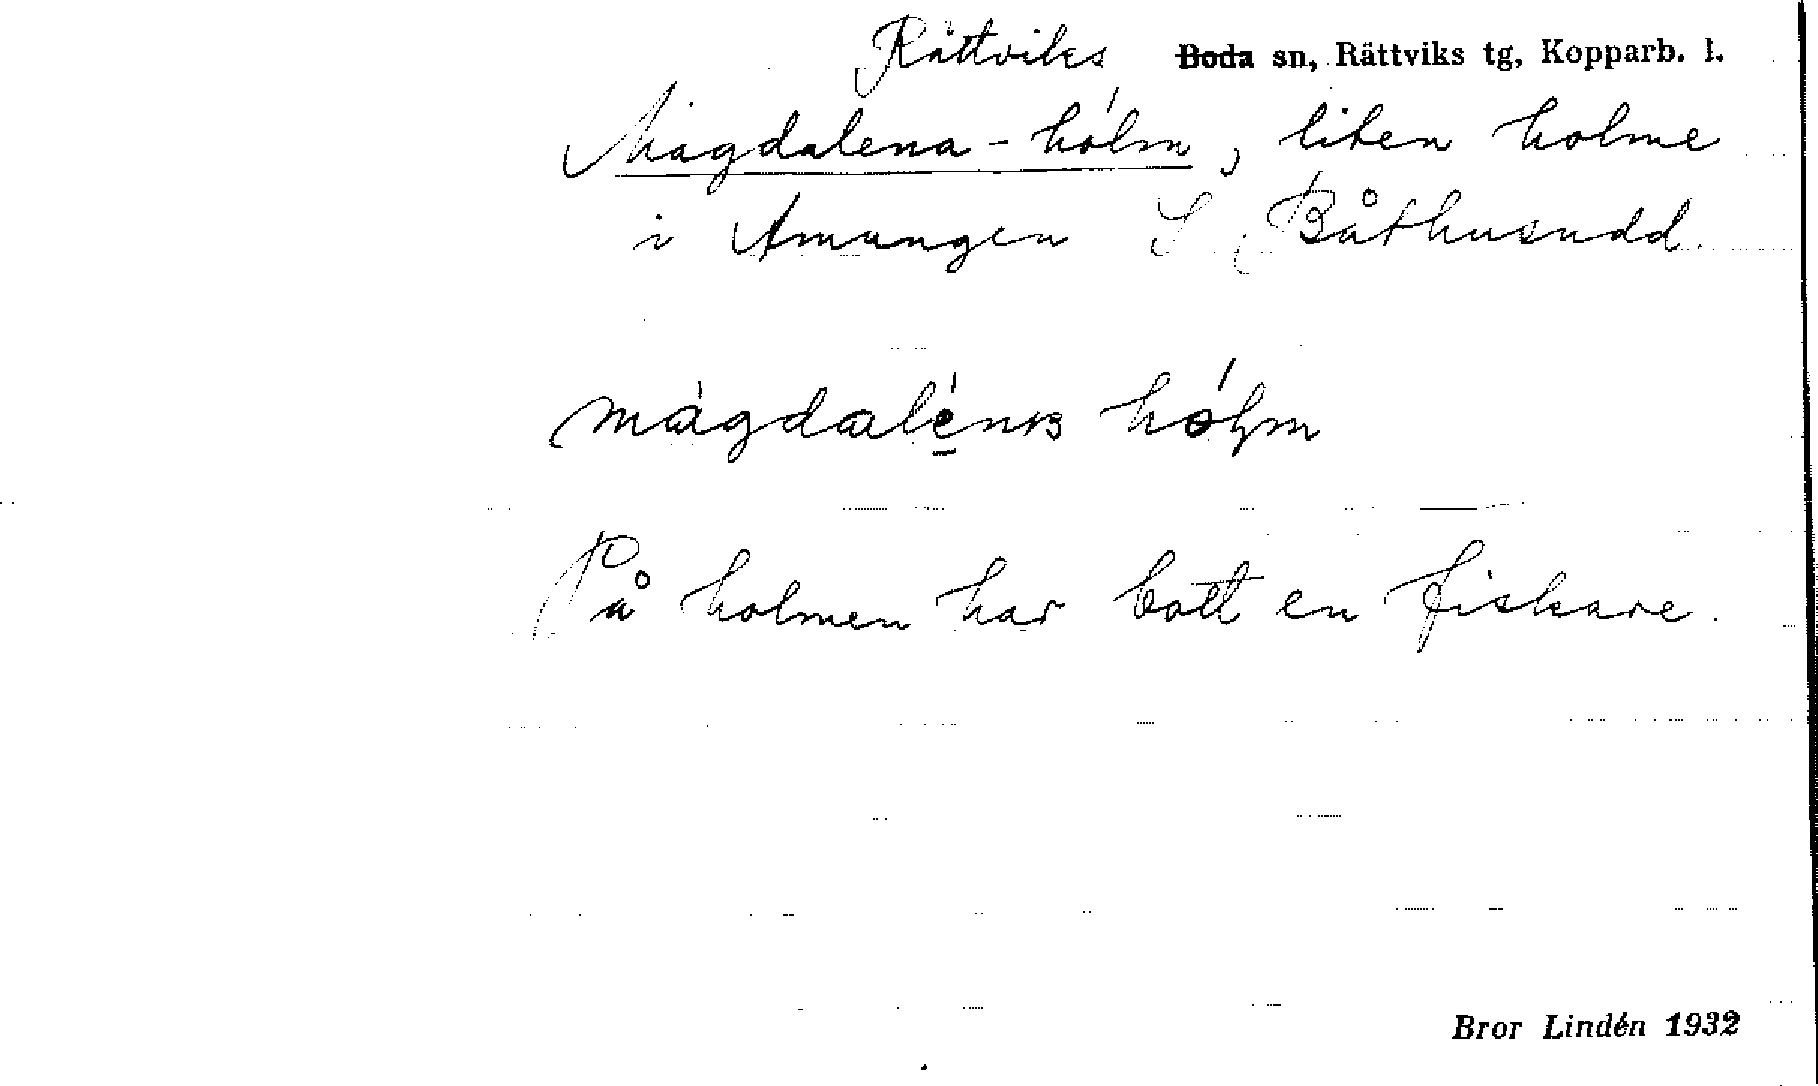 Rättviks Boda sn, Rättviks tg, Kopparb. l.
Magdalena-hólm, liten holme
i Amungen S Båthusudd.
mágdalénɐ hólm
På holmen har bott en fiskare.
Bror Lindén 1932